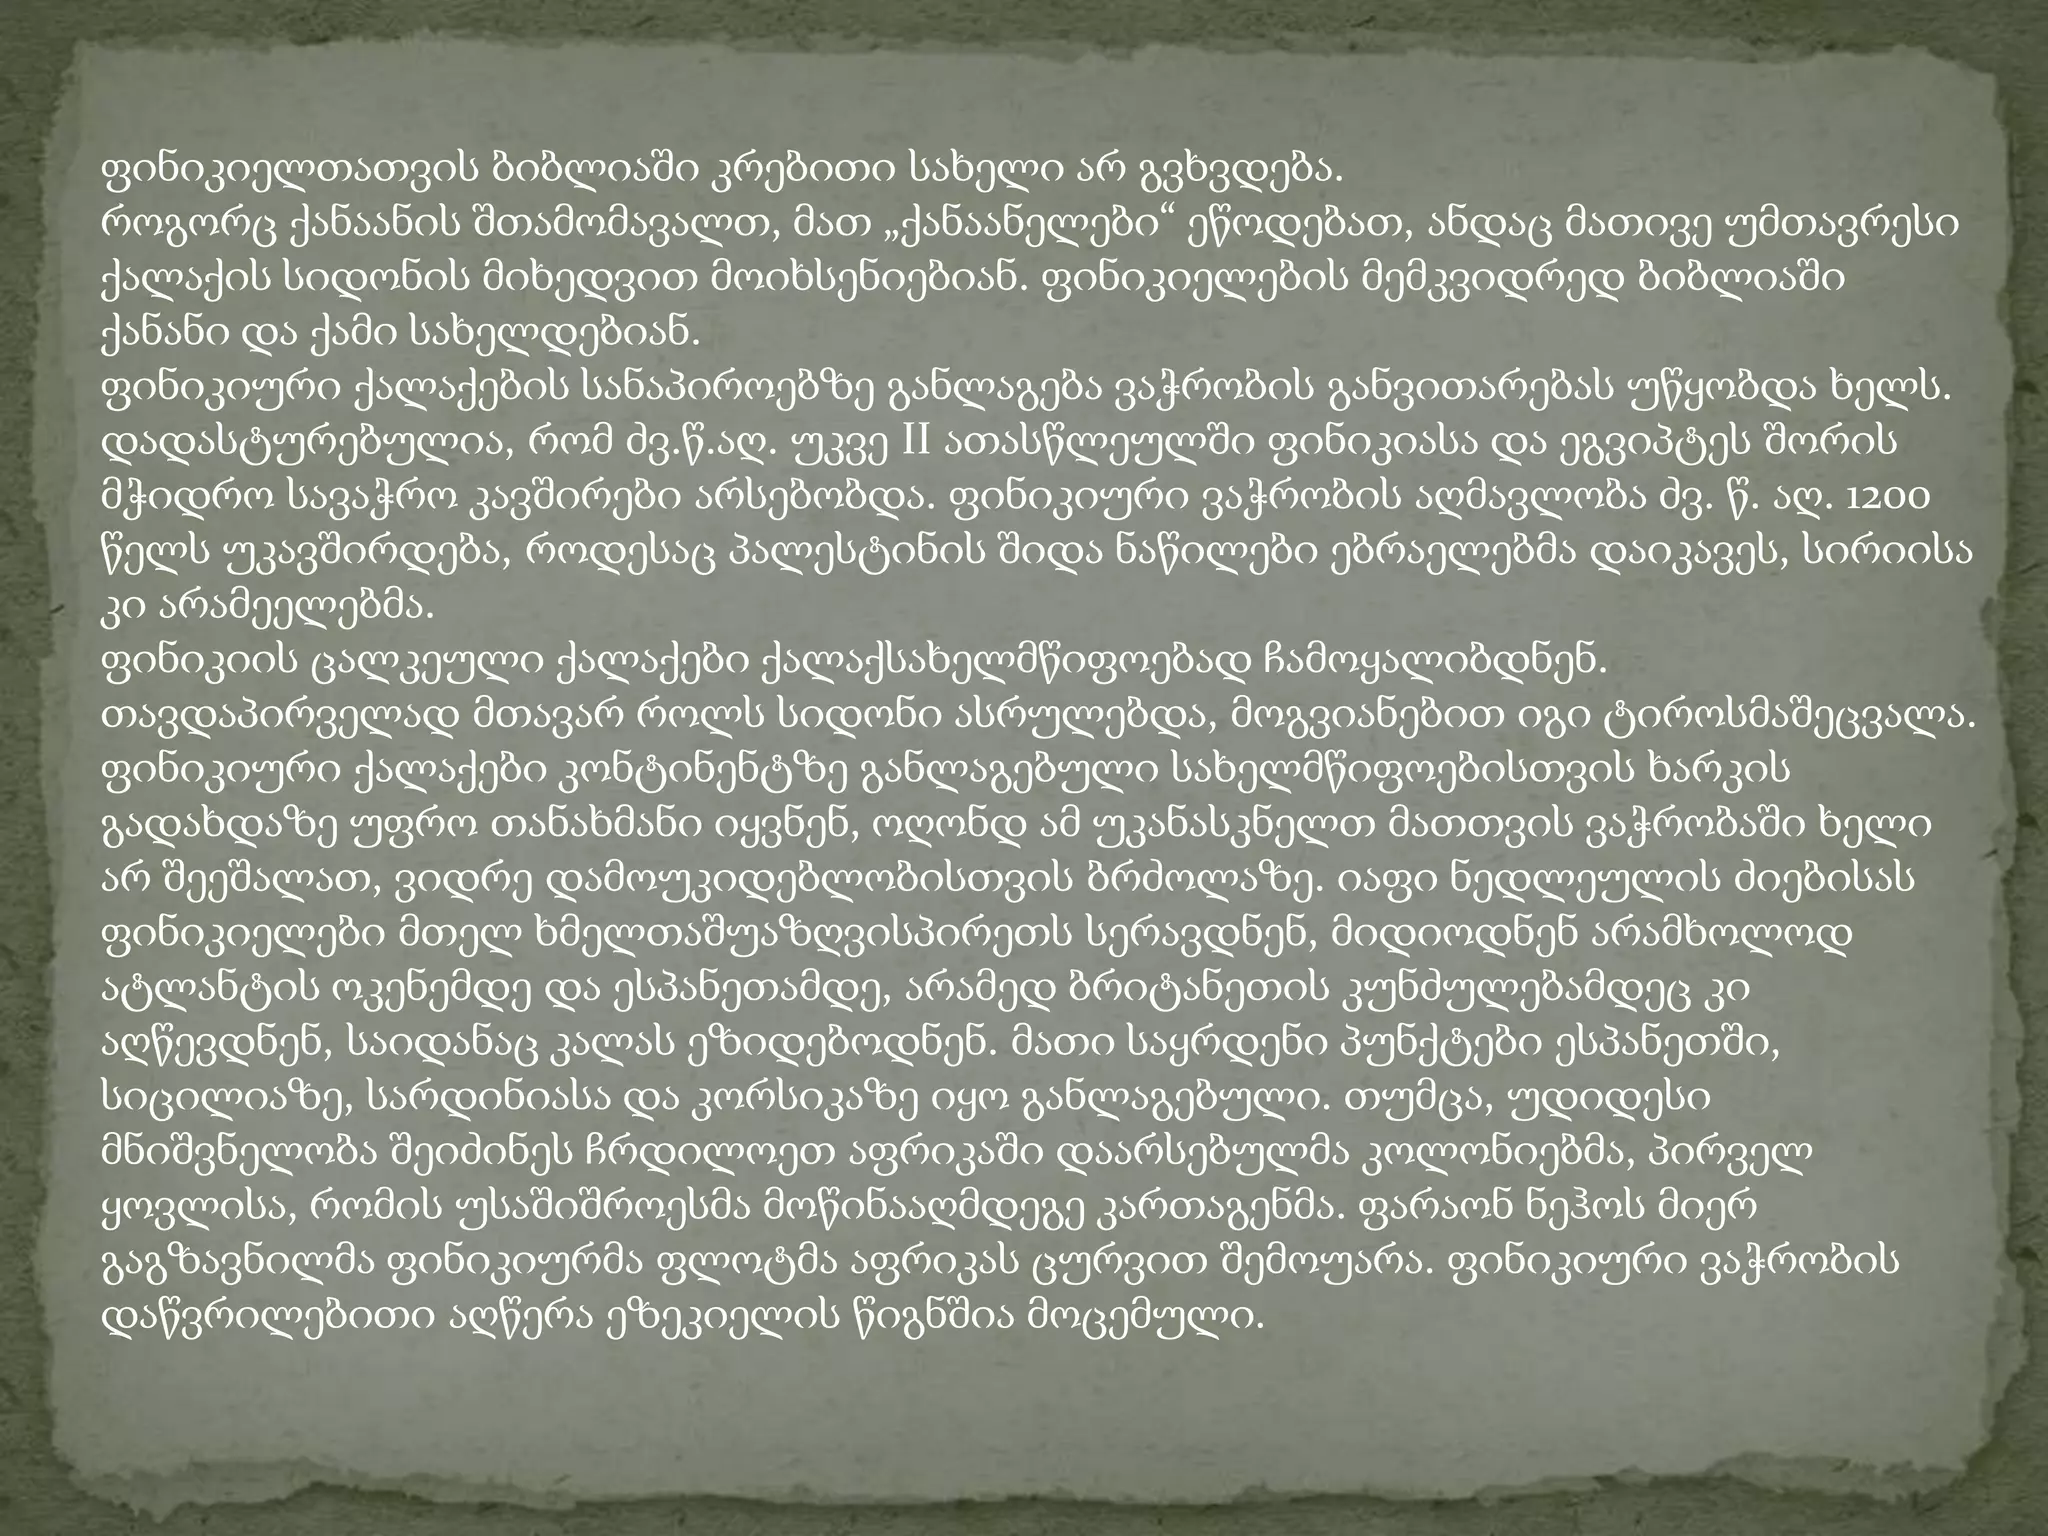 ფინიკიელთათვის ბიბლიაში კრებითი სახელი არ გვხვდება.
როგორც ქანაანის შთამომავალთ, მათ „ქანაანელები“ ეწოდებათ, ანდაც მათივე უმთავრესი
ქალაქის სიდონის მიხედვით მოიხსენიებიან. ფინიკიელების მემკვიდრედ ბიბლიაში
ქანანი და ქამი სახელდებიან.
ფინიკიური ქალაქების სანაპიროებზე განლაგება ვაჭრობის განვითარებას უწყობდა ხელს.
დადასტურებულია, რომ ძვ.წ.აღ. უკვე II ათასწლეულში ფინიკიასა და ეგვიპტეს შორის
მჭიდრო სავაჭრო კავშირები არსებობდა. ფინიკიური ვაჭრობის აღმავლობა ძვ. წ. აღ. 1200
წელს უკავშირდება, როდესაც პალესტინის შიდა ნაწილები ებრაელებმა დაიკავეს, სირიისა
კი არამეელებმა.
ფინიკიის ცალკეული ქალაქები ქალაქსახელმწიფოებად ჩამოყალიბდნენ.
თავდაპირველად მთავარ როლს სიდონი ასრულებდა, მოგვიანებით იგი ტიროსმაშეცვალა.
ფინიკიური ქალაქები კონტინენტზე განლაგებული სახელმწიფოებისთვის ხარკის
გადახდაზე უფრო თანახმანი იყვნენ, ოღონდ ამ უკანასკნელთ მათთვის ვაჭრობაში ხელი
არ შეეშალათ, ვიდრე დამოუკიდებლობისთვის ბრძოლაზე. იაფი ნედლეულის ძიებისას
ფინიკიელები მთელ ხმელთაშუაზღვისპირეთს სერავდნენ, მიდიოდნენ არამხოლოდ
ატლანტის ოკენემდე და ესპანეთამდე, არამედ ბრიტანეთის კუნძულებამდეც კი
აღწევდნენ, საიდანაც კალას ეზიდებოდნენ. მათი საყრდენი პუნქტები ესპანეთში,
სიცილიაზე, სარდინიასა და კორსიკაზე იყო განლაგებული. თუმცა, უდიდესი
მნიშვნელობა შეიძინეს ჩრდილოეთ აფრიკაში დაარსებულმა კოლონიებმა, პირველ
ყოვლისა, რომის უსაშიშროესმა მოწინააღმდეგე კართაგენმა. ფარაონ ნეჰოს მიერ
გაგზავნილმა ფინიკიურმა ფლოტმა აფრიკას ცურვით შემოუარა. ფინიკიური ვაჭრობის
დაწვრილებითი აღწერა ეზეკიელის წიგნშია მოცემული.